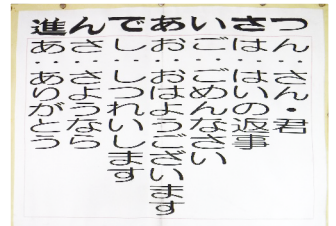 進んであいさつ
あ‥ありがとう
さ‥さようなら
し‥しつれいします
お‥おはようございます
ご‥ごめんなさい
は‥はいの返事
ん‥さん・君